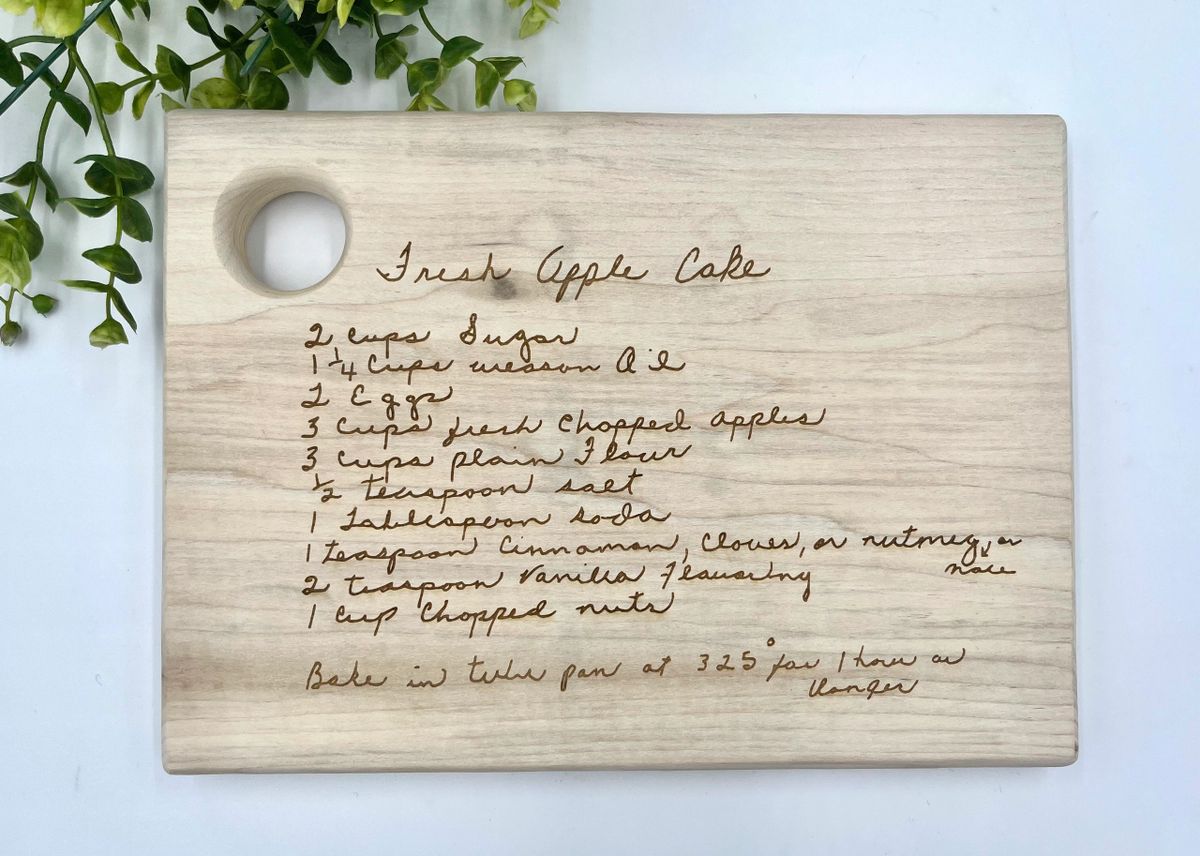 Fresh Apple Cake
2 cups Sugar
1 1/4 Cups wesson Oil
2 Eggs
3 cups fresh chopped apples
3 cups plain Flour
1/2 teaspoon salt
1 Tablespoon soda
1 teaspoon Cinnamon, Cloves, or nutmeg, or
2 teaspoon Vanilla Flavoring
1 cup Chopped nuts
Bake in tube pan at 325° for 1 hour or
longer